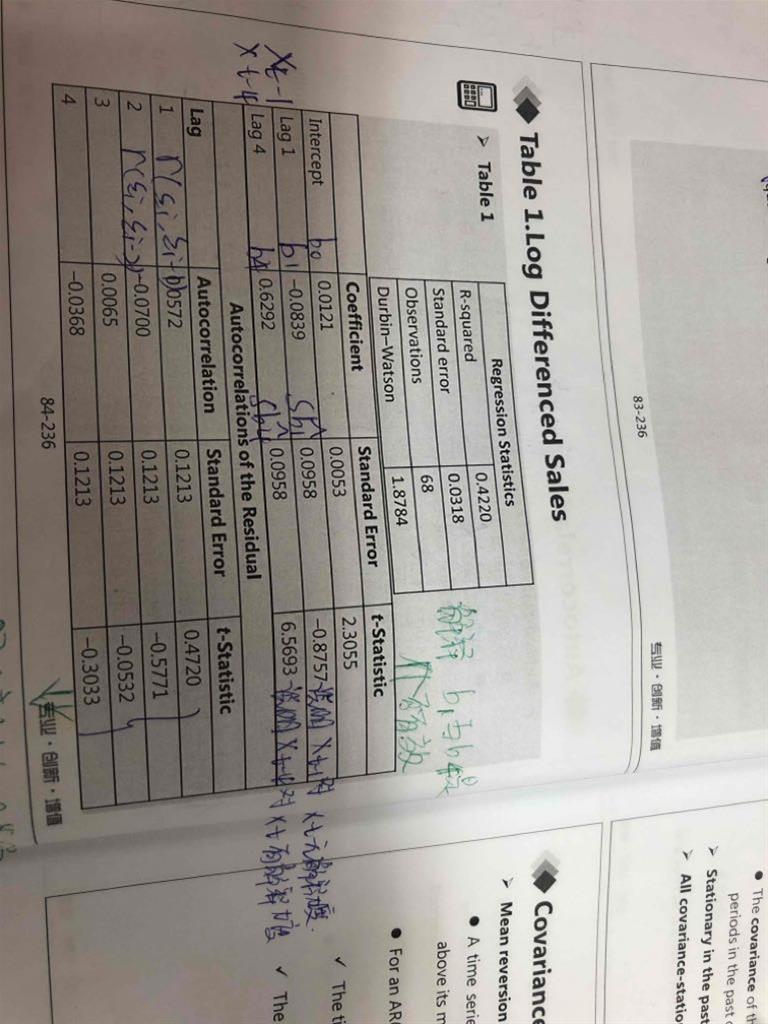 83-236
专业·创新·增值
Table 1.Log Differenced Sales
Table 1
Regression Statistics
R-squared 0.4220
Standard error 0.0318
Observations 68
Durbin–Watson 1.8784
解释 b1与b4
是否有效
Coefficient Standard Error t-Statistic
Intercept b0 0.0121 0.0053 2.3055
Xt-1 Lag 1 b1 −0.0839 Sb1 0.0958 −0.8757 说明 Xt-1对 Xt无解释度.
Xt-4 Lag 4 b4 0.6292 Sb4 0.0958 6.5693 说明 Xt-4对 Xt有解释度
Autocorrelations of the Residual
Lag Autocorrelation Standard Error t-Statistic
1 r(εi, εi-1) 0.0572 0.1213 0.4720
2 r(εi, εi-2) −0.0700 0.1213 −0.5771
3 0.0065 0.1213 −0.0532
4 −0.0368 0.1213 −0.3033
84-236
专业·创新·增值
The covariance of th
periods in the past
Stationary in the past
All covariance-statio
Covariance
Mean reversion
A time serie
above its m
✓ The ti
For an AR(
✓ The